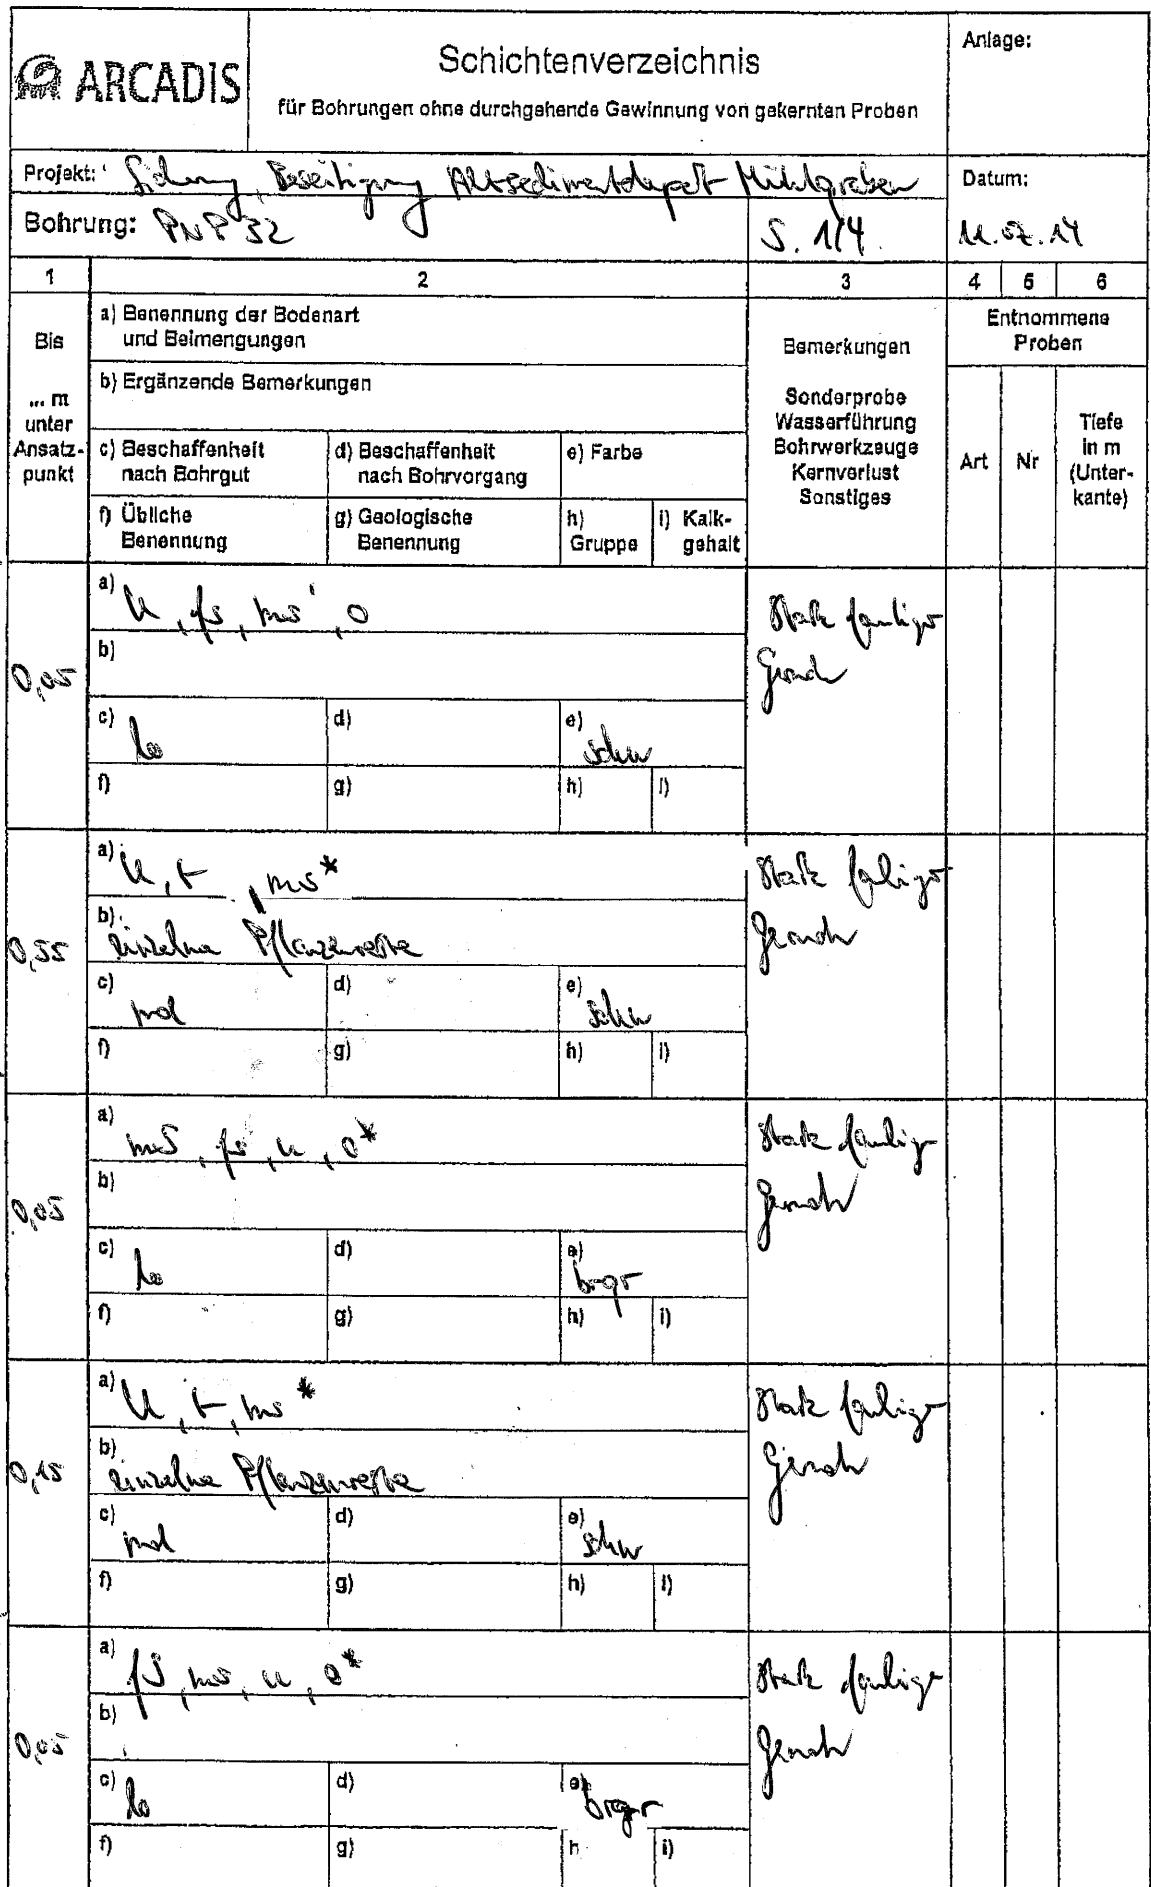 ARCADIS
Schichtenverzeichnis
für Bohrungen ohne durchgehende Gewinnung von gekernten Proben
Anlage:
Projekt: Beseitigung Altsedimentdepot Mühlgraben
Datum:
Bohrung: PNP 32 S. 1/4 11.07.14
1 2 3 4 5 6
a) Benennung der Bodenart
und Beimengungen
b) Ergänzende Bemerkungen
c) Beschaffenheit
nach Bohrgut
d) Beschaffenheit
nach Bohrvorgang
e) Farbe
f) Übliche
Benennung
g) Geologische
Benennung
h)
Gruppe
i) Kalk-
gehalt
Bis
... m
unter
Ansatz-
punkt
Bemerkungen
Sonderprobe
Wasserführung
Bohrwerkzeuge
Kernverlust
Sonstiges
Entnommene
Proben
Art
Nr
Tiefe
in m
(Unter-
kante)
0,05
a) U, fs, ms', o
b)
c) lo d) e) schw
f) g) h) i)
stark fauliger
Geruch
0,55
a) U, t, ms*
b) einzelne Pflanzenreste
c) md d) e) schw
f) g) h) i)
stark fauliger
Geruch
0,05
a) mS, fs, u, o*
b)
c) lo d) e) brgr
f) g) h) i)
stark fauliger
Geruch
0,15
a) U, t, ms*
b) einzelne Pflanzenreste
c) md d) e) schw
f) g) h) i)
stark fauliger
Geruch
0,05
a) fS, ms, u, o*
b)
c) lo d) e) brgr
f) g) h i)
stark fauliger
Geruch